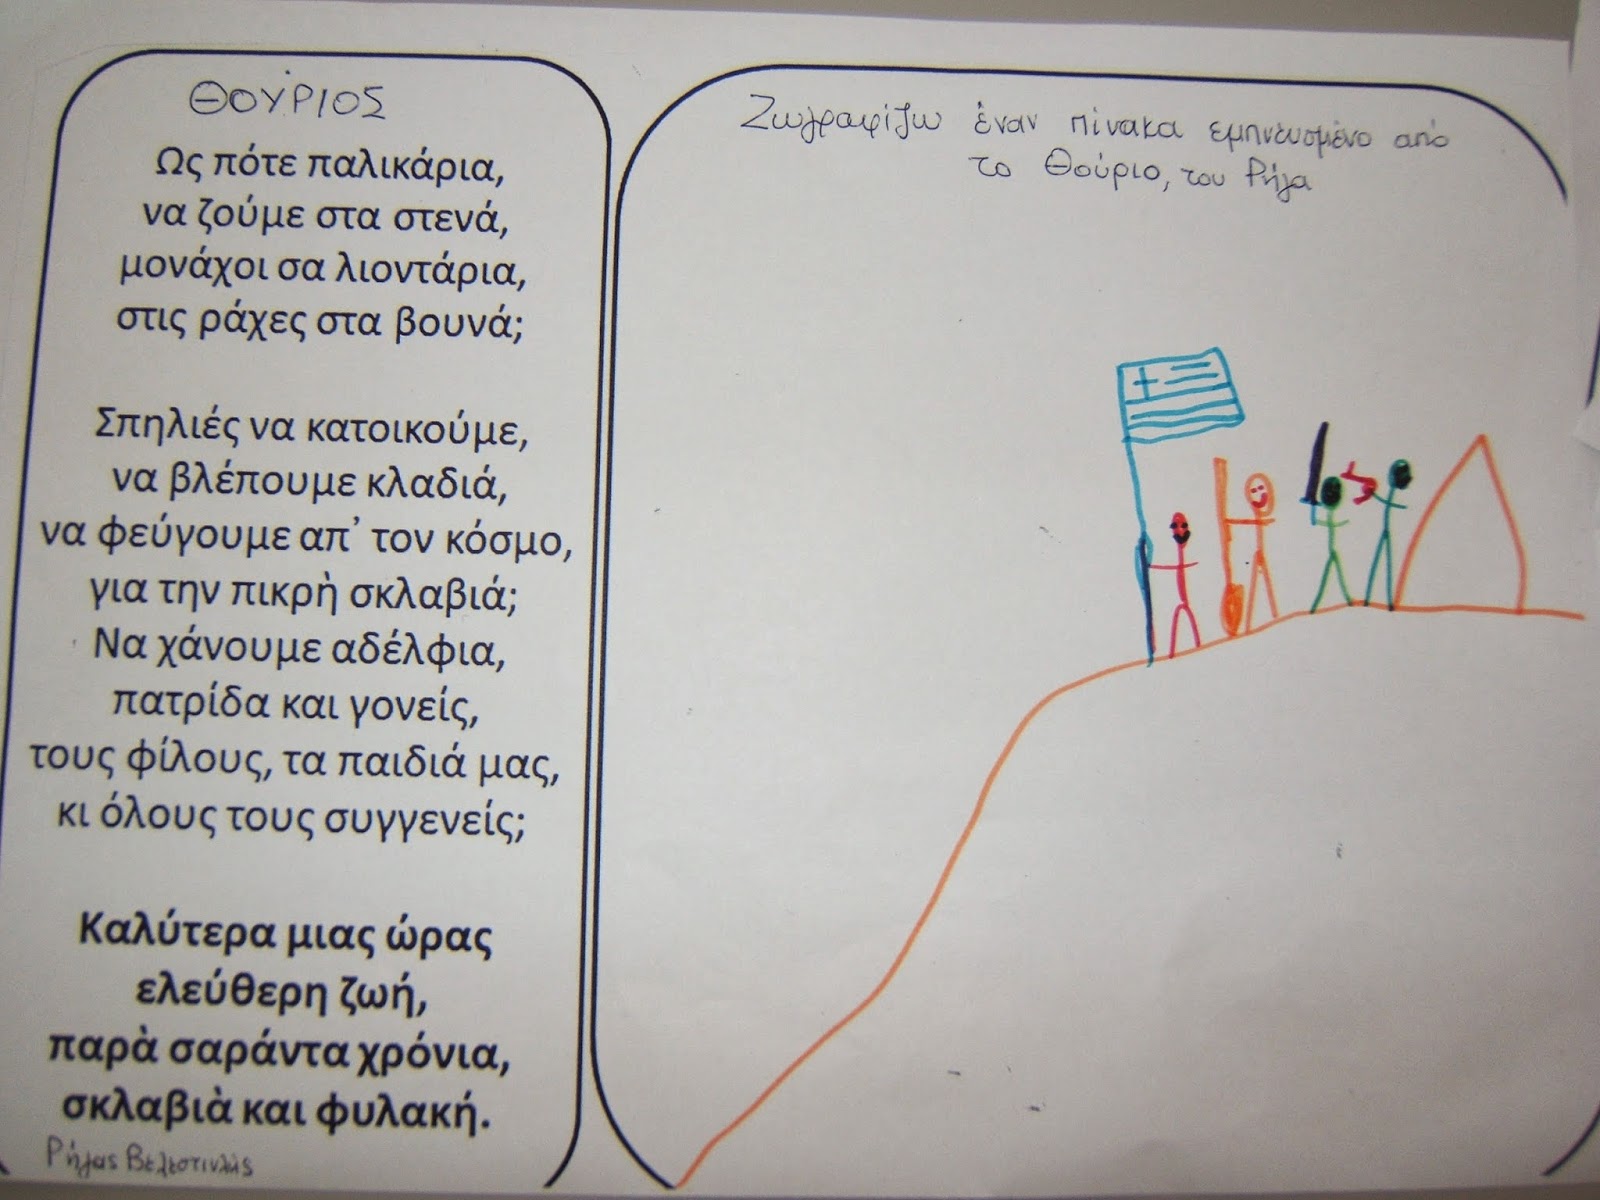 ΘΟΥΡΙΟΣ
Ως πότε παλικάρια,
να ζούμε στα στενά,
μονάχοι σα λιοντάρια,
στις ράχες στα βουνά;
Σπηλιές να κατοικούμε,
να βλέπουμε κλαδιά,
να φεύγουμε απ’ τον κόσμο,
για την πικρὴ σκλαβιά;
Να χάνουμε αδέλφια,
πατρίδα και γονείς,
τους φίλους, τα παιδιά μας,
κι όλους τους συγγενείς;
Καλύτερα μιας ώρας
ελεύθερη ζωή,
παρὰ σαράντα χρόνια,
σκλαβιὰ και φυλακή.
Ρήγας Βελεστινλής
Ζωγραφίζω έναν πίνακα εμπνευσμένο από
το Θούριο, του Ρήγα